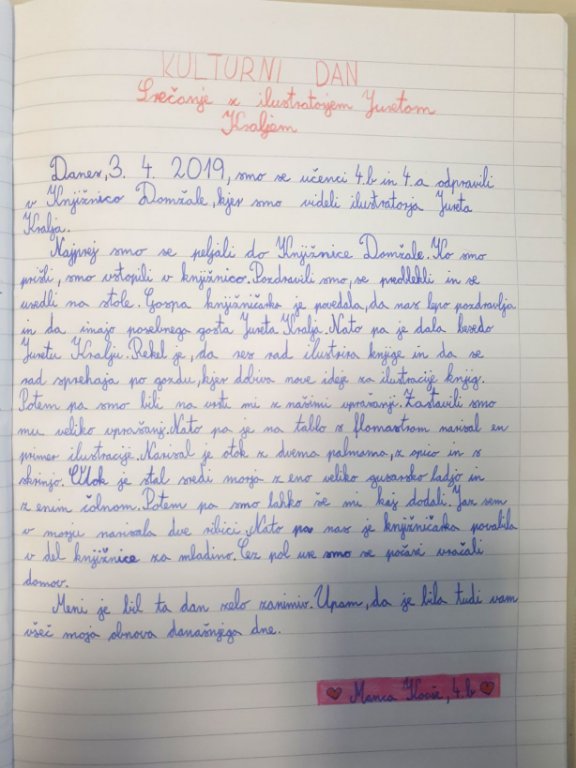 KULTURNI DAN
Srečanje z ilustratorjem Juretom
Kraljem
Danes, 3. 4. 2019, smo se učenci 4.b in 4.a odpravili
v Knjižnico Domžale, kjer smo videli ilustratorja Jureta
Kralja.
Najprej smo se peljali do Knjižnice Domžale. Ko smo
prišli, smo vstopili v knjižnico. Pozdravili smo, se predlekli in se
usedli na stole. Gospa knjižničarka je povedala, da nas lepo pozdravlja
in da imajo posebnega gosta Jureta Kralja. Nato pa je dala besedo
Juretu Kralju. Rekel je, da res rad ilustrira knjige in da se
rad sprehaja po gozdu, kjer dobiva nove ideje za ilustracije knjig.
Potem pa smo bili na vrsti mi z našimi vprašanji. Zastavili smo
mu veliko vprašanj. Nato pa je na tablo s flomastrom narisal en
primer ilustracije. Narisal je otok z dvema palmama, z spico in s
skrinjo. Otok je stal sredi morja z eno veliko gusarsko ladjo in
z enim čolnom. Potem pa smo lahko še mi kaj dodali. Jaz sem
v morju narisala dve ribici. Nato pa nas je knjižničarka povabila
v del knjižnice za mladino. Čez pol ure smo se počasi vračali
domov.
Meni je bil ta dan zelo zanimiv. Upam, da je bila tudi vam
všeč moja obnova današnjega dne.
Manca, 4.b